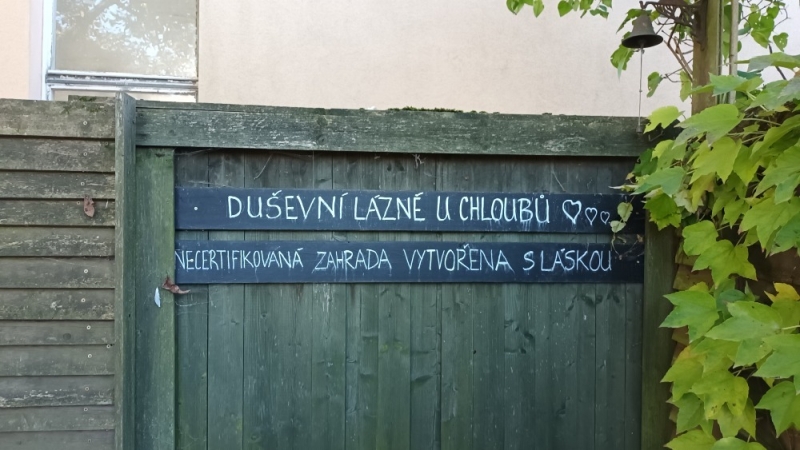 DUŠEVNÍ LÁZNĚ U CHLOUBŮ ♡♡♡
NECERTIFIKOVANÁ ZAHRADA VYTVOŘENA S LÁSKOU